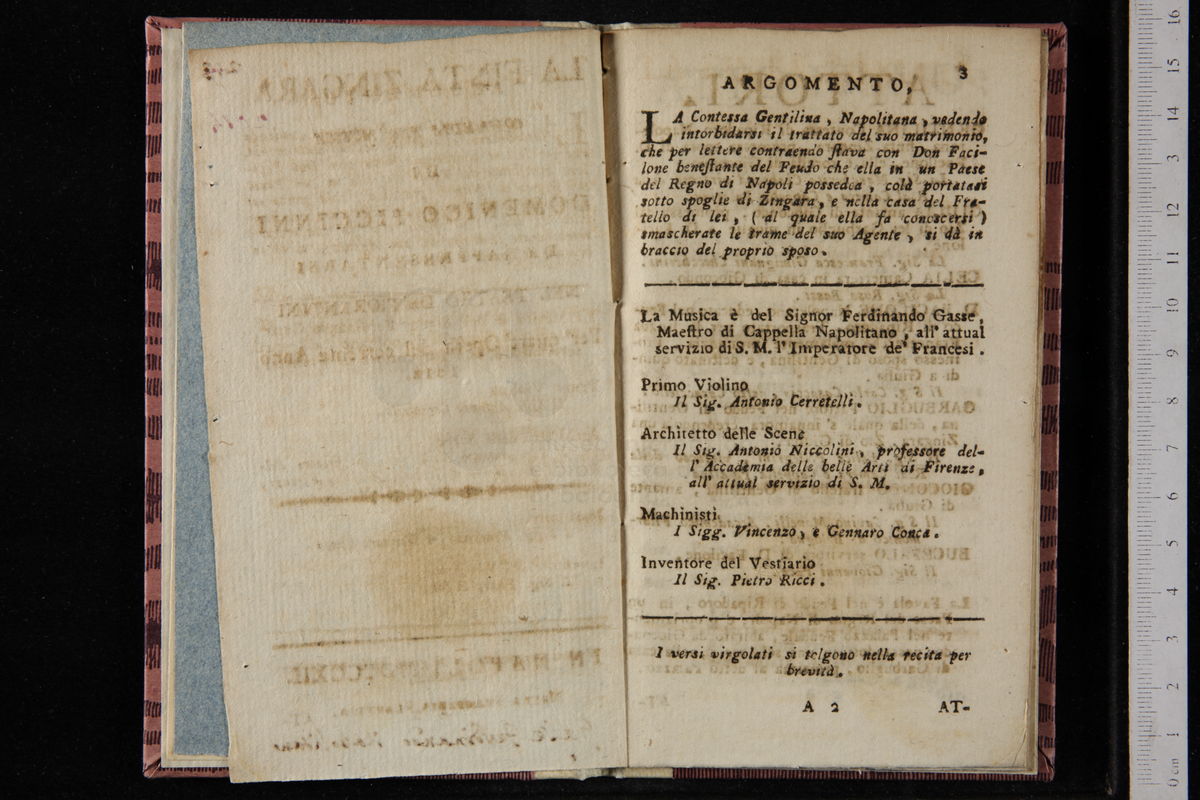 3
ARGOMENTO,
LA Contessa Gentilina, Napolitana, vedendo
intorbidarsi il trattato del suo matrimonio,
che per lettere contraendo ſtava con Don Faci-
lone beneſtante del Feudo che ella in un Paese
del Regno di Napoli possedea, colà portatasi
sotto spoglie di Zingara, e nella casa del Fra-
tello di lei, (al quale ella fa conoscersi)
smascherate le trame del suo Agente, si dà in
braccio del proprio sposo.
La Musica è del Signor Ferdinando Gasse,
Maeſtro di Cappella Napolitano, all' attual
servizio di S. M. l' Imperatore de' Francesi.
Primo Violino
Il Sig. Antonio Cerretelli.
Architetto delle Scene
Il Sig. Antonio Niccolini, professore del-
l' Accademia delle belle Arti di Firenze,
all' attual servizio di S. M.
Machinisti
I Sigg. Vincenzo, e Gennaro Conca.
Inventore del Vestiario
Il Sig. Pietro Ricci.
I versi virgolati si tolgono nella recita per
brevità.
A 2 AT-
0 cm 1 2 3 4 5 6 7 8 9 10 11 12 13 14 15 16